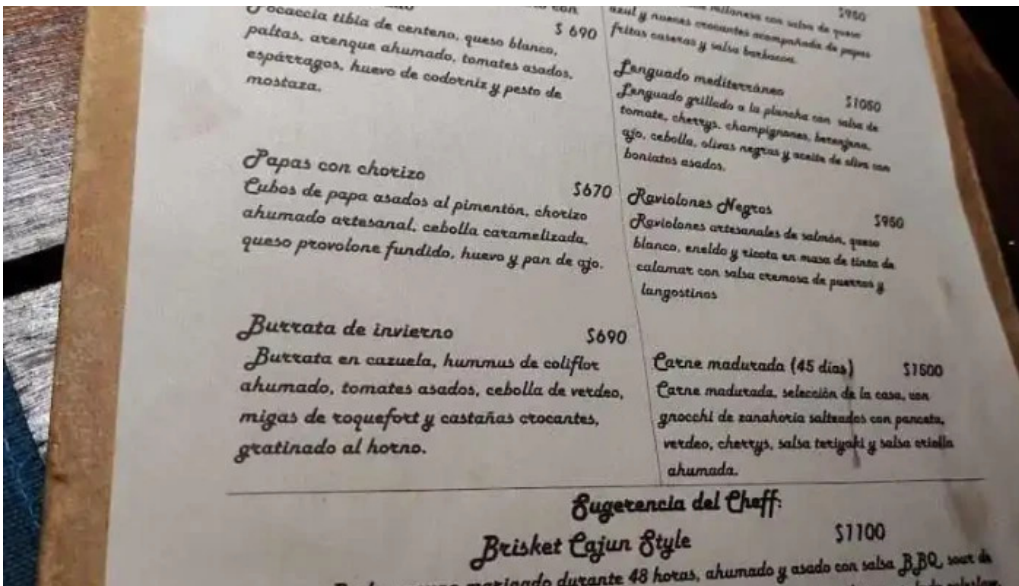 con
$ 690
Focaccia tibia de centeno, queso blanco,
paltas, arenque ahumado, tomates asados,
espárragos, huevo de codorniz y pesto de
mostaza.
Papas con chorizo
$670
Cubos de papa asados al pimentón, chorizo
ahumado artesanal, cebolla caramelizada,
queso provolone fundido, huevo y pan de ajo.
Burrata de invierno $690
Burrata en cazuela, hummus de coliflor
ahumado, tomates asados, cebolla de verdeo,
migas de roquefort y castañas crocantes,
gratinado al horno.
$950
milanesa con salsa de queso
azul y nueces crocantes acompañada de papas
fritas caseras y salsa barbacoa.
Lenguado mediterráneo $1050
Lenguado grillado a la plancha con salsa de
tomate, cherrys, champignones, berenjena,
ajo, cebolla, olivas negras y aceite de oliva con
boniatos asados.
Raviolones Negros $950
Raviolones artesanales de salmón, queso
blanco, eneldo y ricota en masa de tinta de
calamar con salsa cremosa de puerros y
langostinos
Carne madurada (45 días) $1500
Carne madurada, selección de la casa, con
gnocchi de zanahoria salteados con panceta,
verdeo, cherrys, salsa teriyaki y salsa criolla
ahumada.
Sugerencia del Cheff:
Brisket Cajun Style $1100
marinado durante 48 horas, ahumado y asado con salsa BBQ, sour de